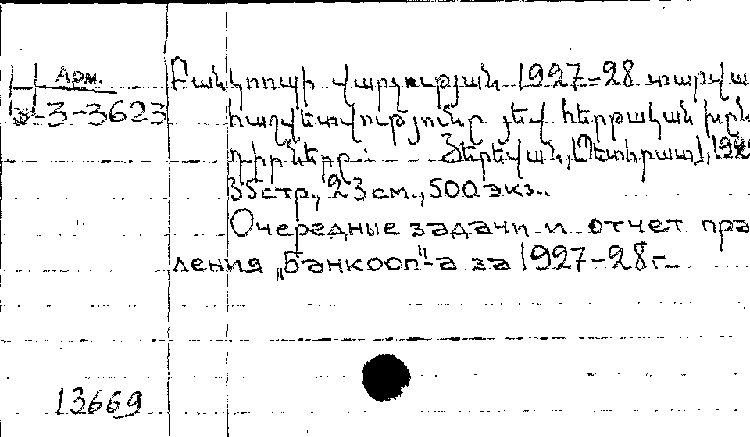 Арм.
3-3623
Բանկոոպի վարչության 1927-28 տարվա
հաշվետվությունը յեվ հերթական խըն
դիրները. Յերեվան, Պետհրատ, 192
35стр., 23 см., 500 экз..
Очередные задачи и отчет пра
ления „Банкооп"-а за 1927-28 г.
13669